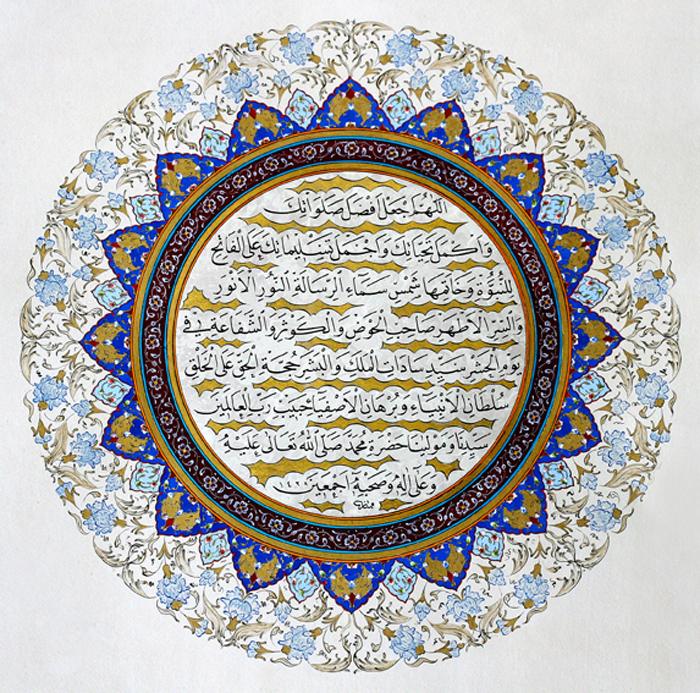 اللهم اجعل افضل صلواتك
واكمل تحياتك واجمل تسليماتك على الفاتح
للنبوة وخاتمها شمس سماء الرسالة النور الانور
والسر الاطهر صاحب الحوض والكوثر والشفاعة في
يوم الحشر سيد سادات الملك والبشر حجة الحق على الخلق
سلطان الانبياء وبرهان الاصفياء حبيب رب العالمين
سيدنا ومولينا حضرة محمد صلى الله تعالى عليه
وعلى اله وصحبه اجمعين